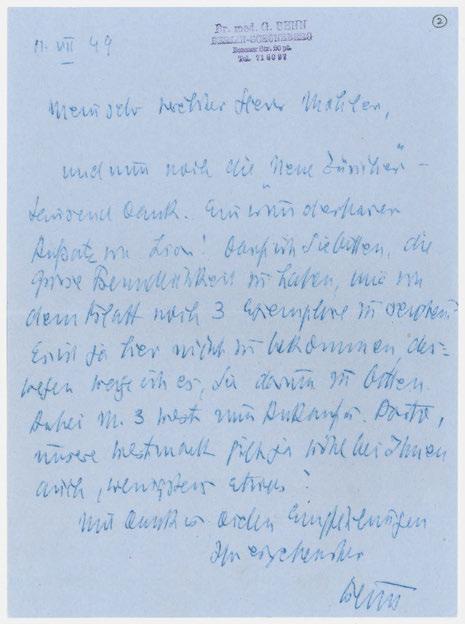 ②
Dr. med. G. BENN
BERLIN-SCHÖNEBERG
Bozener Str. 20 pt.
Tel. 71 20 97
11. VII 49
Mein sehr verehrter Herr Mohler,
und nun noch die "Neue Züricher" –
tausend Dank. Ein wunderbarer
Aufsatz von Lion! Darf ich Sie bitten, die
grosse Freundlichkeit zu haben, mir von
dem Blatt noch 3 Exemplare zu senden?
Es ist ja hier nicht zu bekommen, des-
wegen wage ich es, Sie darum zu bitten.
Anbei M. 3 West zum Ankauf.
unsere Westmark gilt ja wohl bei Ihnen
auch, wenigstens etwas!
Mit Dank u. Empfehlungen
Ihr ergebenster
Benn